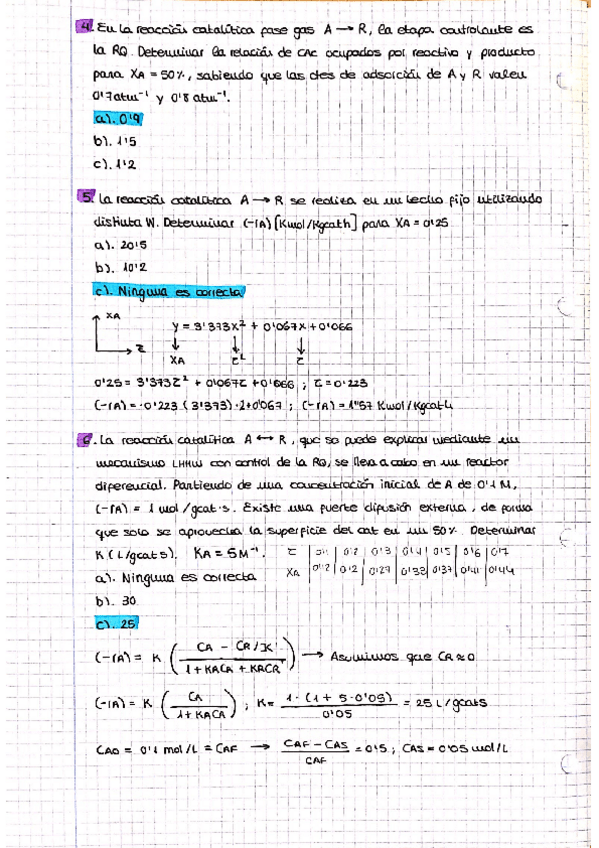 4. En la reacción catalítica fase gas A → R, la etapa controlante es
la RQ. Determinar la relación de CAC ocupados por reactivo y producto
para XA = 50%, sabiendo que las ctes de adsorción de A y R valen
0'7atm⁻¹ y 0'8 atm⁻¹.
a). 0'9
b). 1'5
c). 1'2
5. La reacción catalítica A → R se realiza en un lecho fijo utilizando
distinta W. Determinar (-rA) [Kmol/Kgcat h] para XA = 0'25
a). 20'5
b). 10'2
c). Ninguna es correcta
XA
y = 3'373x² + 0'067x + 0'066
τ
XA τ² τ
0'25 = 3'373τ² + 0'067τ + 0'066 ; τ = 0'223
(-rA) = 0'223 (3'373)·2+0'067 ; (-rA) = 1'57 Kmol/Kgcat h
6. La reacción catalítica A ↔ R, que se puede explicar mediante un
mecanismo LHHW con control de la RQ, se lleva a cabo en un reactor
diferencial. Partiendo de una concentración inicial de A de 0'1 M,
(-rA) = 1 mol/gcat·s. Existe una fuerte difusión externa, de forma
que solo se aprovecha la superficie del cat en un 50%. Determinar
K (L/gcat s). KA = 5M⁻¹.
τ | 0'1 | 0'2 | 0'3 | 0'4 | 0'5 | 0'6 | 0'7
XA | 0'12 | 0'2 | 0'27 | 0'33 | 0'37 | 0'41 | 0'44
a). Ninguna es correcta
b). 30
c). 25
(-rA) = K ( CA - CR/K' / 1 + KACA + KRCR ) → Asumimos que CR ≈ 0
(-rA) = K ( CA / 1 + KACA ) ; K = 1·(1 + 5·0'05) / 0'05 = 25 L/gcat s
CA0 = 0'1 mol/L = CAF → CAF - CAS / CAF = 0'5 ; CAS = 0'05 mol/L